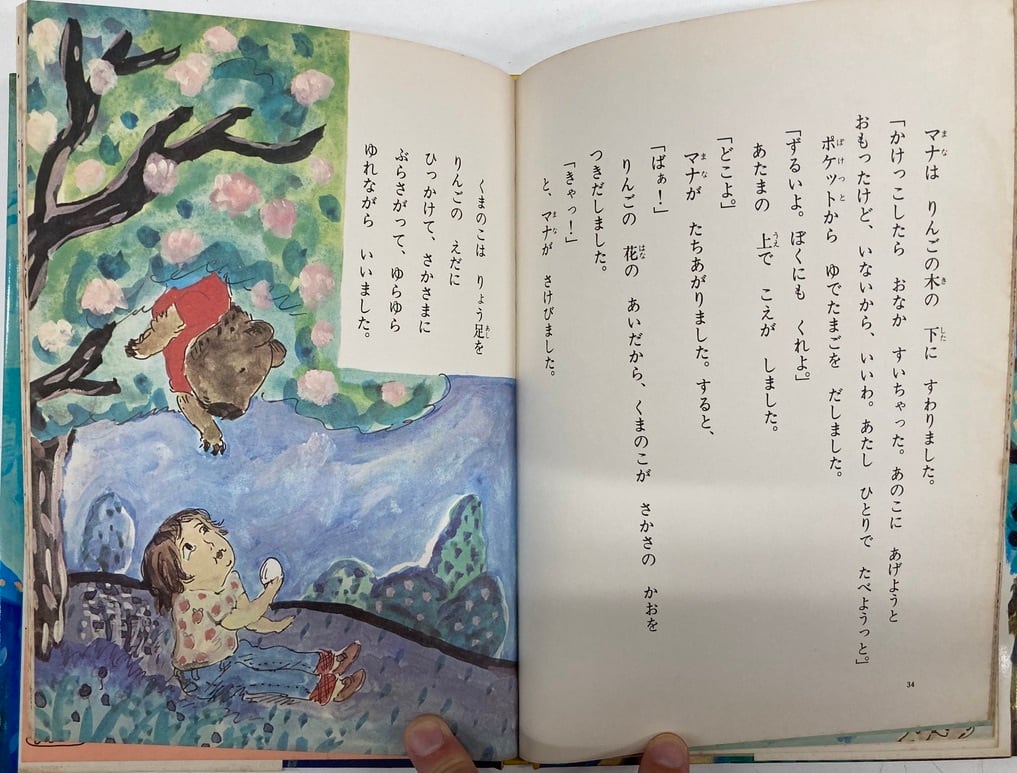 マナは　りんごの木の　下に　すわりました。
「かけっこしたら　おなか　すいちゃった。あのこに　あげようと
おもったけど、いないから、いいわ。あたし　ひとりで　たべようっと。」
ポケットから　ゆでたまごを　だしました。
「ずるいよ。ぼくにも　くれよ。」
あたまの　上で　こえが　しました。
「どこよ。」
マナが　たちあがりました。すると、
「ばぁ！」
りんごの　花の　あいだから、くまのこが　さかさの　かおを
つきだしました。
「きゃっ！」
と、マナが　さけびました。
くまのこは　りょう足を
りんごの　えだに
ひっかけて、さかさまに
ぶらさがって、ゆらゆら
ゆれながら　いいました。
34